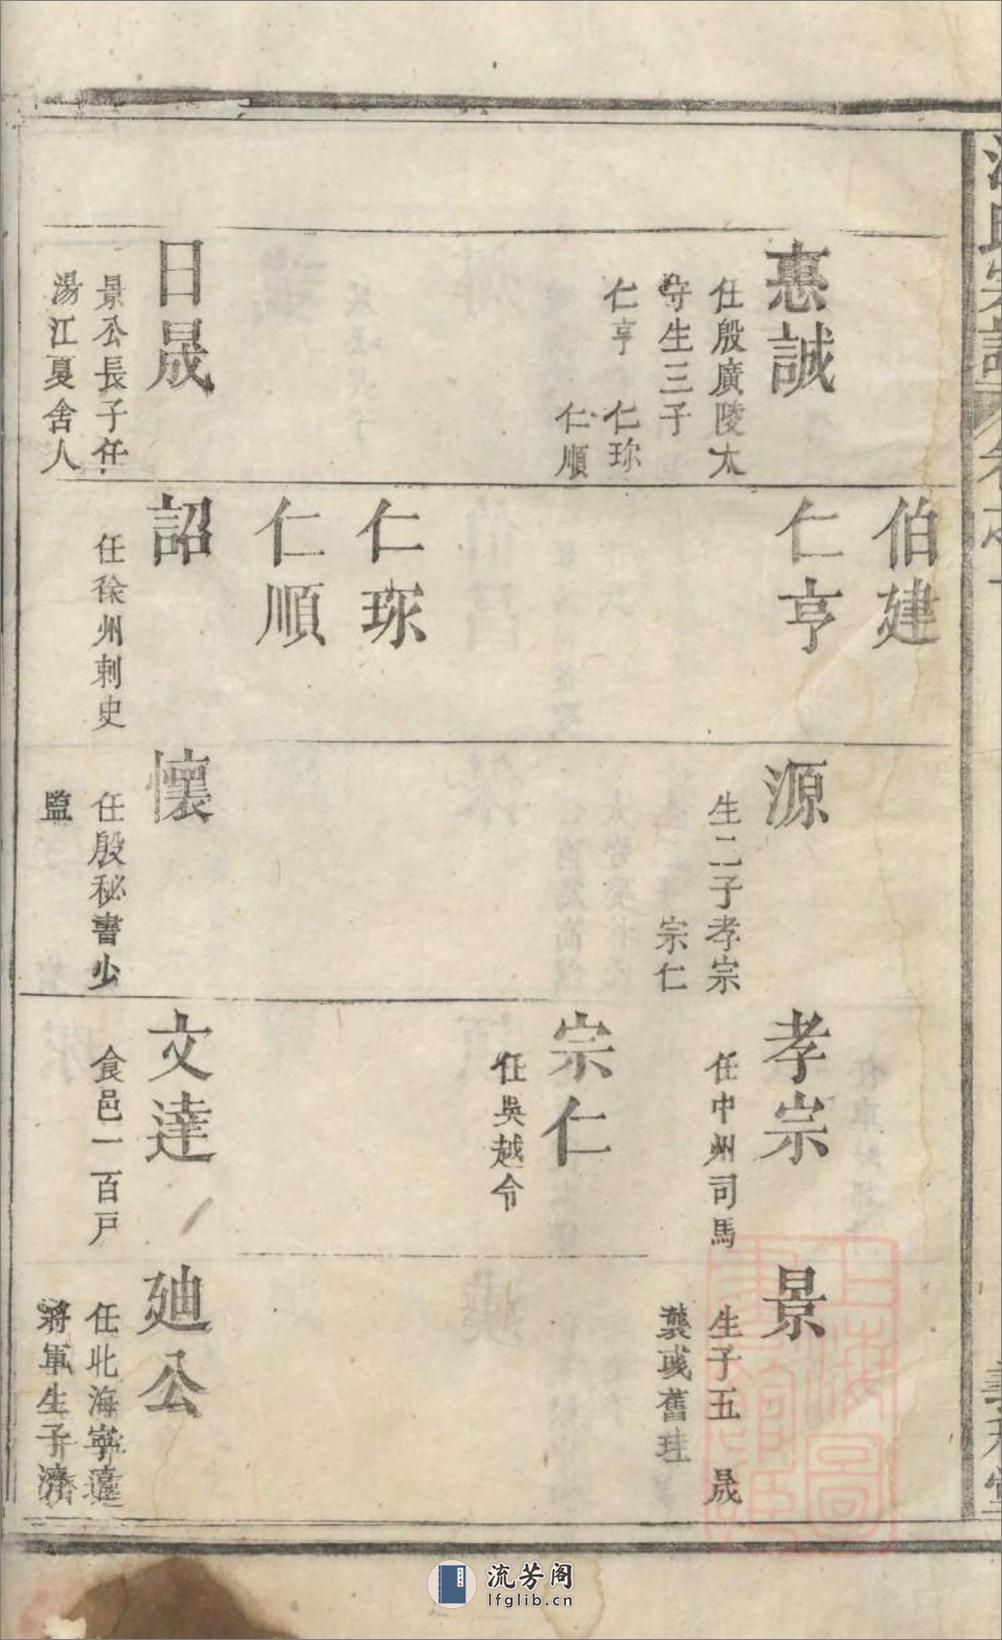 惠誠
任殷廣陵太
守生三子
仁亨 仁珎
仁順
日晟
景公長子任
湯江夏舍人
伯建
仁亨
仁珎
仁順
詔
任徐州刺史
源
生二子孝宗
宗仁
懷
任殷秘書少
監
孝宗
任中州司馬
宗仁
任吳越令
文達
食邑一百戸
景
生子五 晟
龔彧舊珪
廸公
任北海寧遠
將軍生子濟
流芳阁
lfglib.cn